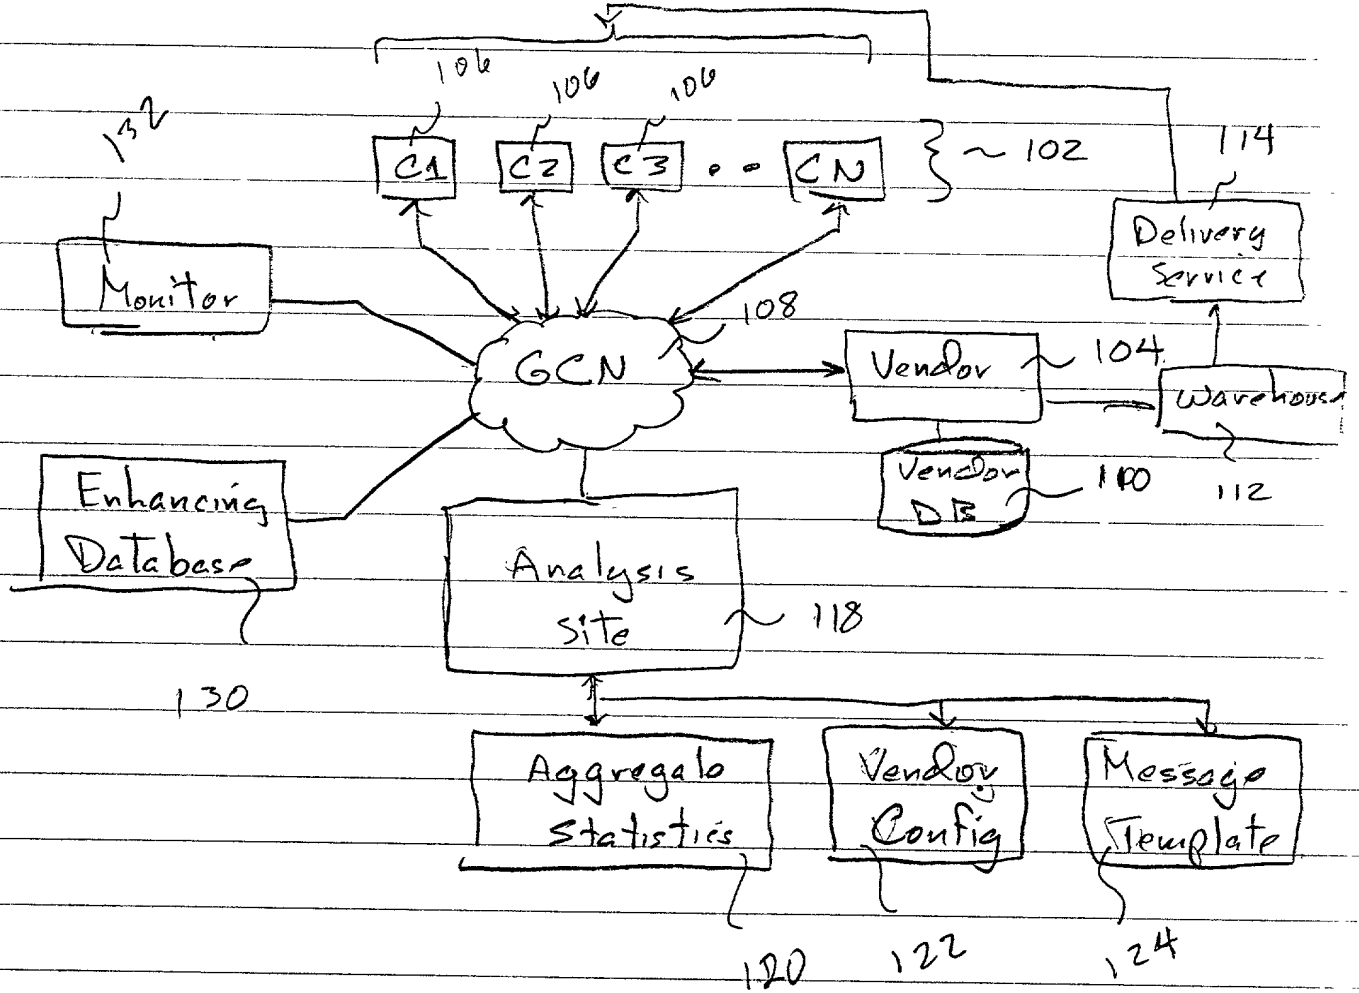 106
106
106
132
C1
C2
C3
..
CN
102
114
Delivery
Service
Monitor
108
GCN
Vendor
104
Warehouse
Enhancing
Database
Vendor
DB
110
112
Analysis
Site
118
130
Aggregate
Statistics
Vendor
Config
Message
Template
120
122
124